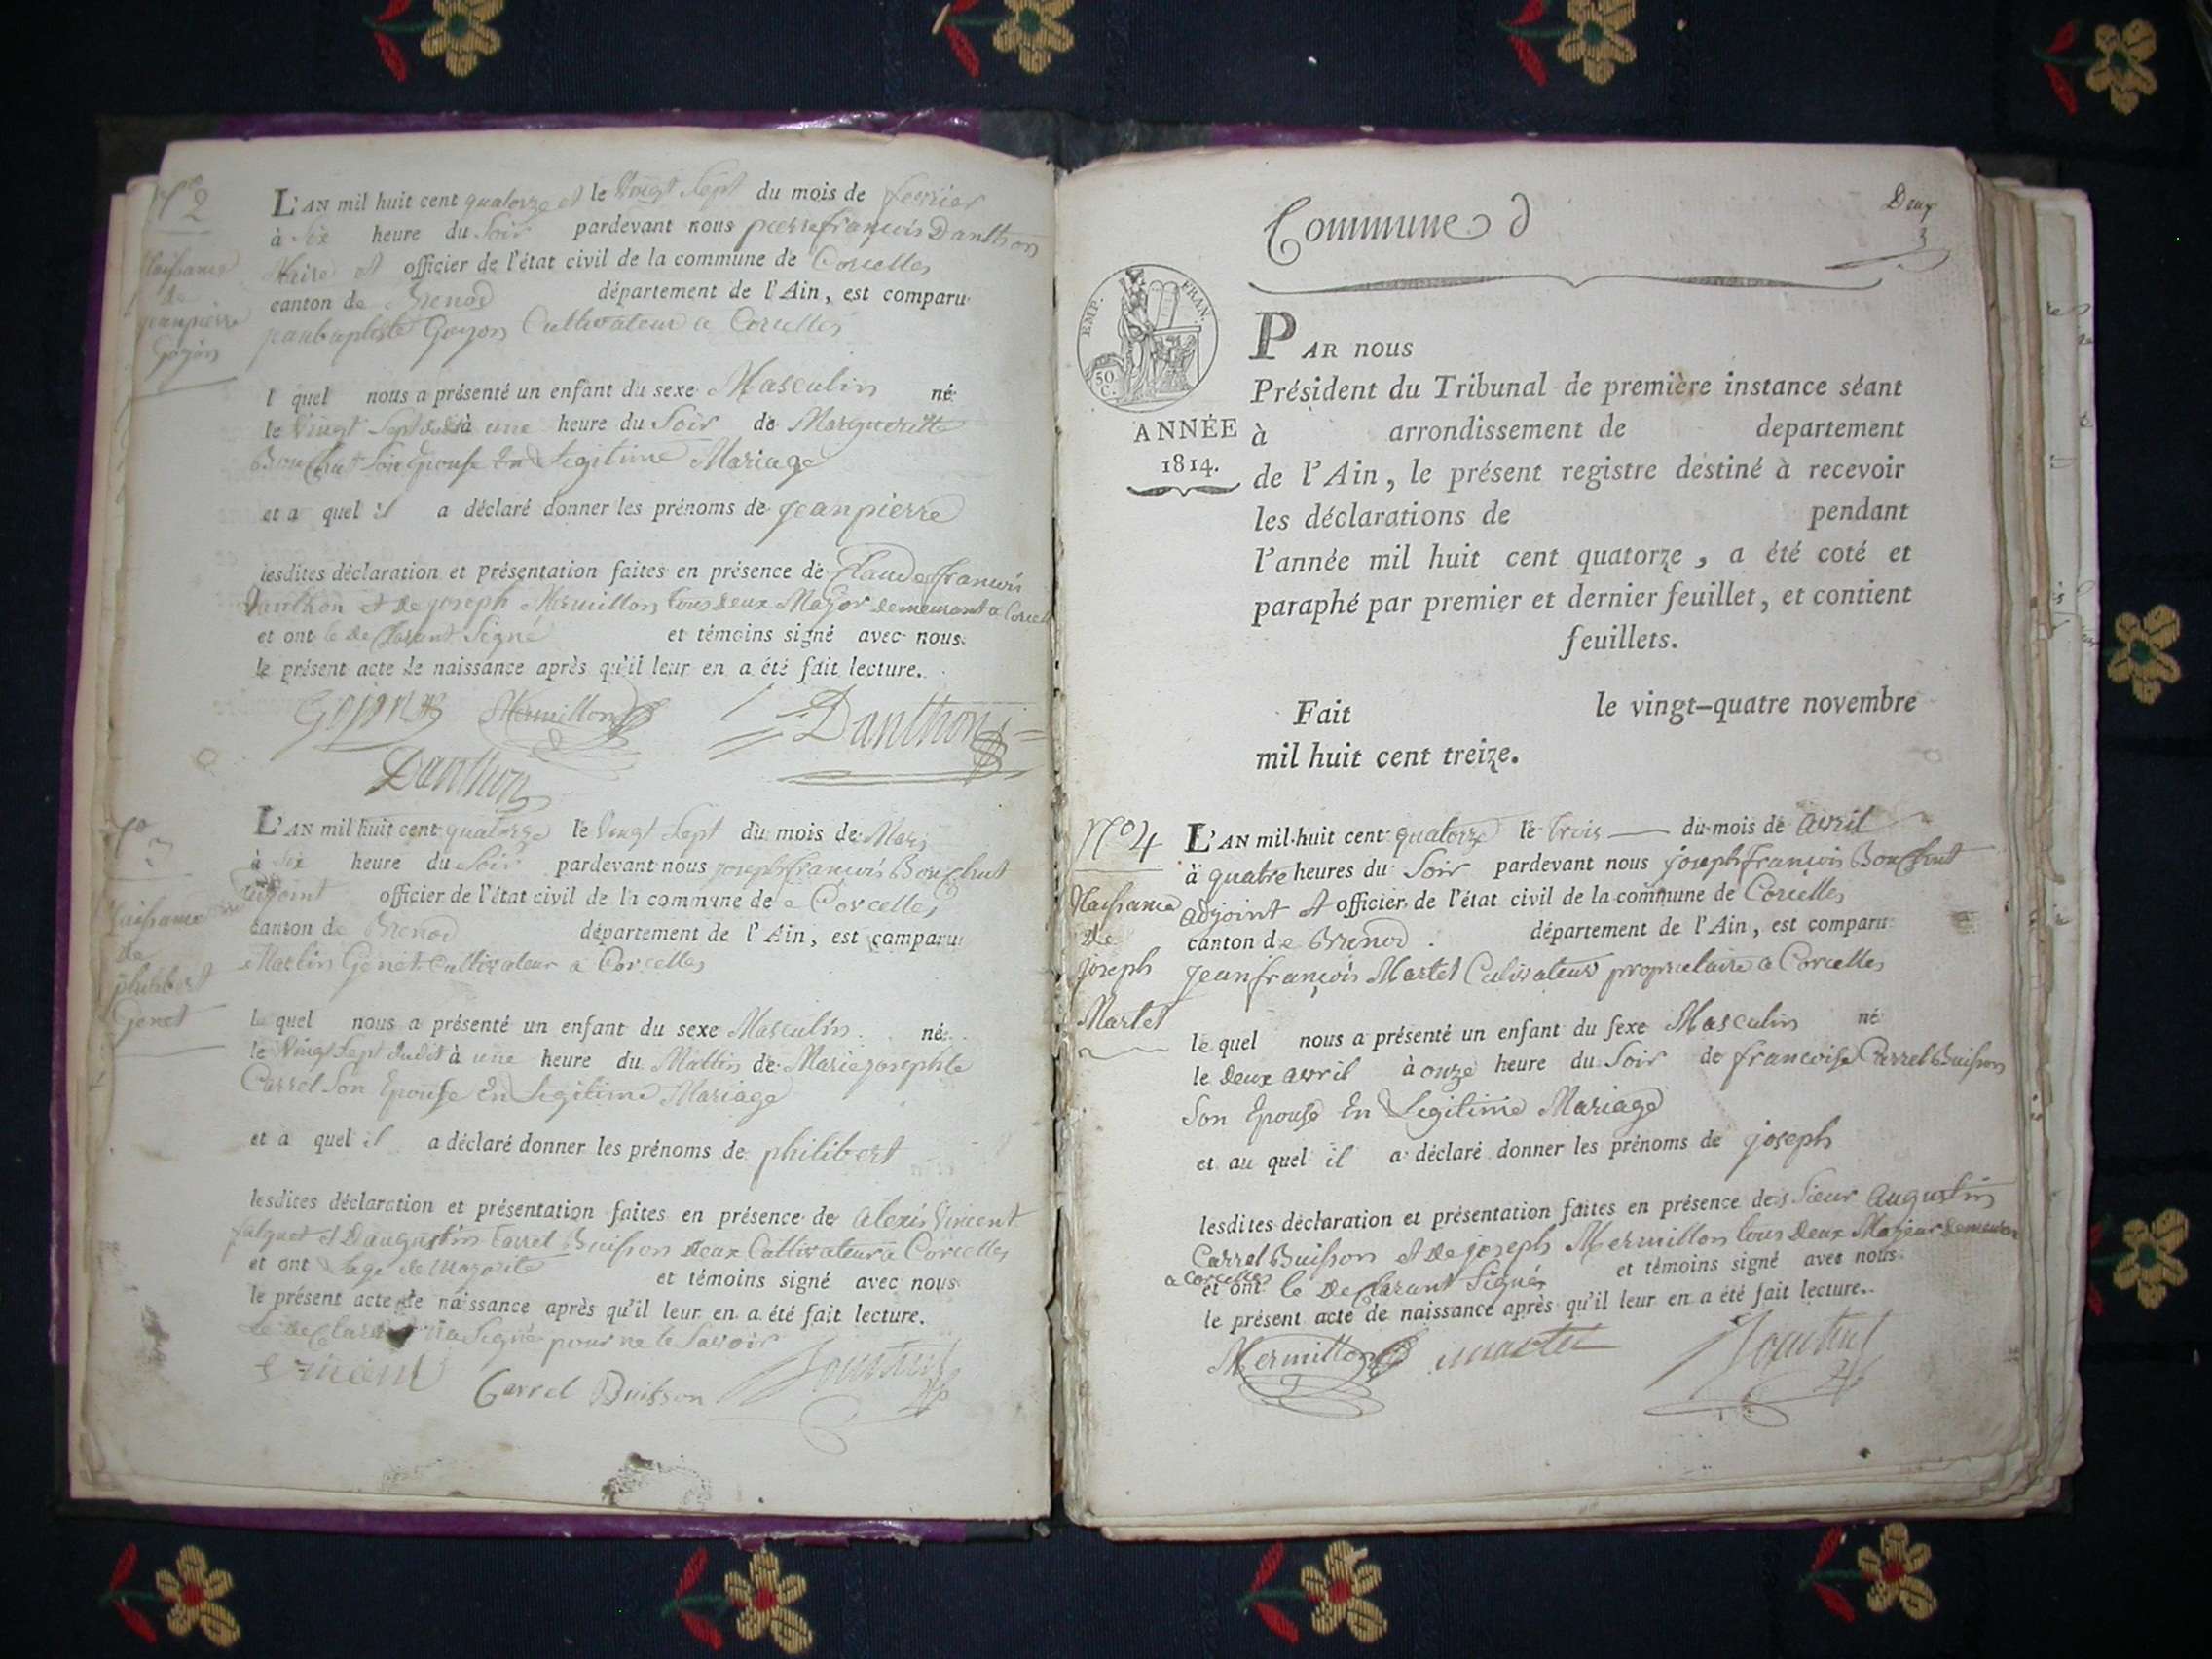 N° 2
Naissance
de
jeanpierre
Goyon
L'AN mil huit cent quatorze et le vingt sept du mois de fevrier
à Six heure du Soir pardevant nous pierre françois Danthon
Maire et officier de l'état civil de la commune de Corcelles
canton de Brenod département de l'Ain, est comparu
jeanbaptiste Goyon Cultivateur a Corcelles
l quel nous a présenté un enfant du sexe Masculin né
le vingt Sept dudit à une heure du Soir de Margueritte
Bouchut Son Epouse En Legitime Mariage
et a quel il a déclaré donner les prénoms de jeanpierre
lesdites déclaration et présentation faites en présence de Claude françois
Danthon et de joseph Mermillon tous deux Major demeurant a Corcell
et ont le declarant Signé et témoins signé avec nous
le présent acte de naissance après qu'il leur en a été fait lecture.
Goyon Mermillon Danthon
Danthon
N° 3
Naissance
de
philibert
Genet
L'AN mil huit cent quatorze le vingt Sept du mois de Mars
à Six heure du Soir pardevant nous joseph françois Bouchut
adjoint officier de l'état civil de la commune de Corcelles
canton de Brenod département de l'Ain, est comparu
Martin Genet Cultivateur a Corcelles
le quel nous a présenté un enfant du sexe Masculin né
le vingt Sept dudit à une heure du Mattin de Mariejosephte
Carrel Son Epouse En Legitime Mariage
et a quel il a déclaré donner les prénoms de philibert
lesdites déclaration et présentation faites en présence de alexis Vincent
falquet et D'augustin Carrel Buisson deux Cultivateur a Corcelles
et ont l'age de Majorité et témoins signé avec nous
le présent acte de naissance après qu'il leur en a été fait lecture.
Le declarant n'a Signé pour ne le Savoir
Vincent Carrel Buisson Bouchut
Deux
3
Commune d
EMP. FRAN.
50
C.
ANNÉE
1814.
PAR nous
Président du Tribunal de première instance séant
à arrondissement de departement
de l'Ain, le présent registre destiné à recevoir
les déclarations de pendant
l'année mil huit cent quatorze, a été coté et
paraphé par premier et dernier feuillet, et contient
feuillets.
Fait le vingt-quatre novembre
mil huit cent treize.
N° 4
Naissance
de
joseph
Martel
L'AN mil huit cent quatorze le trois du mois de avril
à quatre heures du Soir pardevant nous joseph françois Bouchut
adjoint et officier de l'état civil de la commune de Corcelles
canton de Brenod département de l'Ain, est comparu
jeanfrançois Martel Cultivateur proprietaire a Corcelles
le quel nous a présenté un enfant du sexe Masculin né
le deux avril à onze heure du Soir de francoise Carrel Buisson
Son Epouse En Legitime Mariage
et au quel il a déclaré donner les prénoms de joseph
lesdites déclaration et présentation faites en présence des Sieur augustin
Carrel Buisson et de joseph Mermillon tous deux Majeur demeuran
a Corcelles
et ont le declarant Signé et témoins signé avec nous
le présent acte de naissance après qu'il leur en a été fait lecture.
Mermillon martel Bouchut